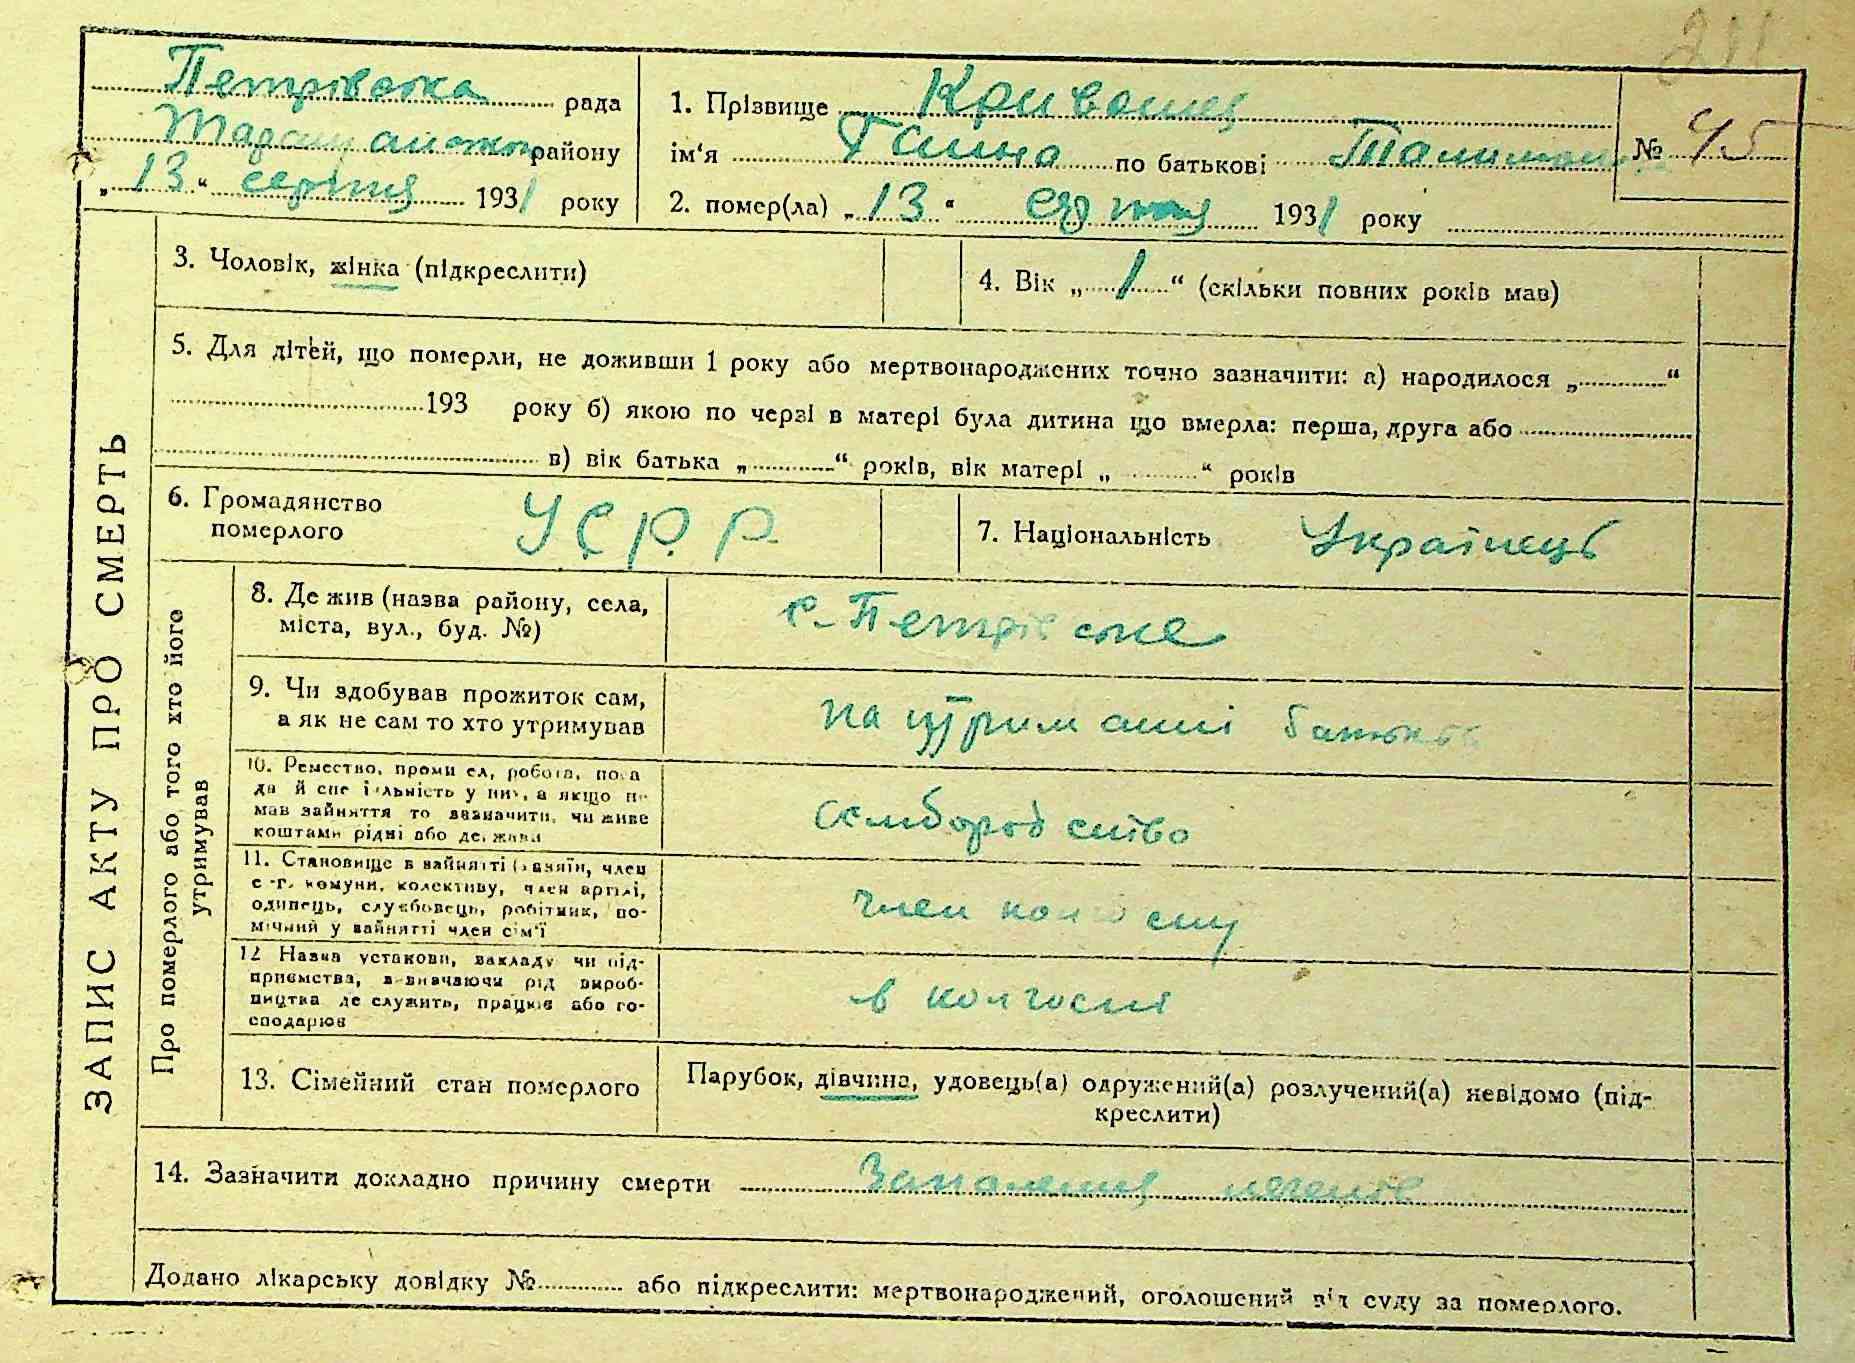 211
Петрівська рада
району
„13“ серпня 1931 року
1. Прізвище
ім'я Ганна по батькові
№ 45
2. помер(ла) „13“ серпня 1931 року
ЗАПИС АКТУ ПРО СМЕРТЬ
3. Чоловік, жінка (підкреслити)
4. Вік „1“ (скільки повних років мав)
5. Для дітей, що померли, не доживши 1 року або мертвонароджених точно зазначити: а) народилося „ “
193 року б) якою по черзі в матері була дитина що вмерла: перша, друга або
в) вік батька „ “ років, вік матері „ “ років
6. Громадянство
померлого
У.С.Р.Р.
7. Національність Українець
Про померлого або того хто його
утримував
8. Де жив (назва району, села,
міста, вул., буд. №)
с. Петрівське
9. Чи здобував прожиток сам,
а як не сам то хто утримував
на утриманні батьків
10. Ремество, промисел, робота, поса
да й спеціальність у ним, а якщо не
мав зайняття то зазначити, чи живе
коштами рідні або держави
11. Становище в зайнятті (хазяїн, член
с.-г. комуни, колективу, член артілі,
одинець, службовець, робітник, по-
мічний у зайнятті член сім'ї
член колгоспу
12 Назва установи, закладу чи під-
приємства, визначаючи рід вироб-
ництва де служить, працює або го-
сподарює
в колгоспі
13. Сімейний стан померлого
Парубок, дівчина, удовець(а) одружений(а) розлучений(а) невідомо (під-
креслити)
14. Зазначити докладно причину смерти Запалення легенів
Додано лікарську довідку № або підкреслити: мертвонароджений, оголошений від суду за померлого.